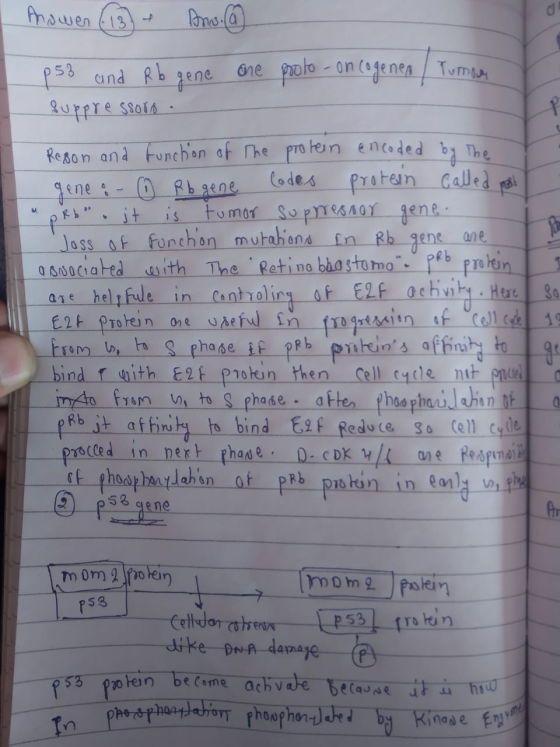 Answer (13) → Ans. (a)
p53 and Rb gene are proto-oncogenes / Tumour
suppressors.
Reson and function of The protein encoded by The
gene :- ① Rb gene Codes protein called
"pRb". it is tumor suppressor gene.
loss of function mutations In Rb gene are
associated with The "Retinobbastoma". pRb protein
are helpfule in controling of E2F activity. Here
E2F protein are useful In progression of cell cycle
from G, to S phase if pRb protein's affinity to
bind with E2F protein then cell cycle not proced
from G, to S phase. after phosphorilation of
pRb it affinity to bind E2F Reduce so cell cycle
procced in next phase. D-CDK 4/6 are Responsib
of phosphorylation of pRb protein in early G, phase
② p53 gene
MDM2 protein
p53
MDM2 protein
p53 protein
Cellular
like DNA damage
P
p53 protein become activate because it is now
In phosphorylated by Kinase Enzyme